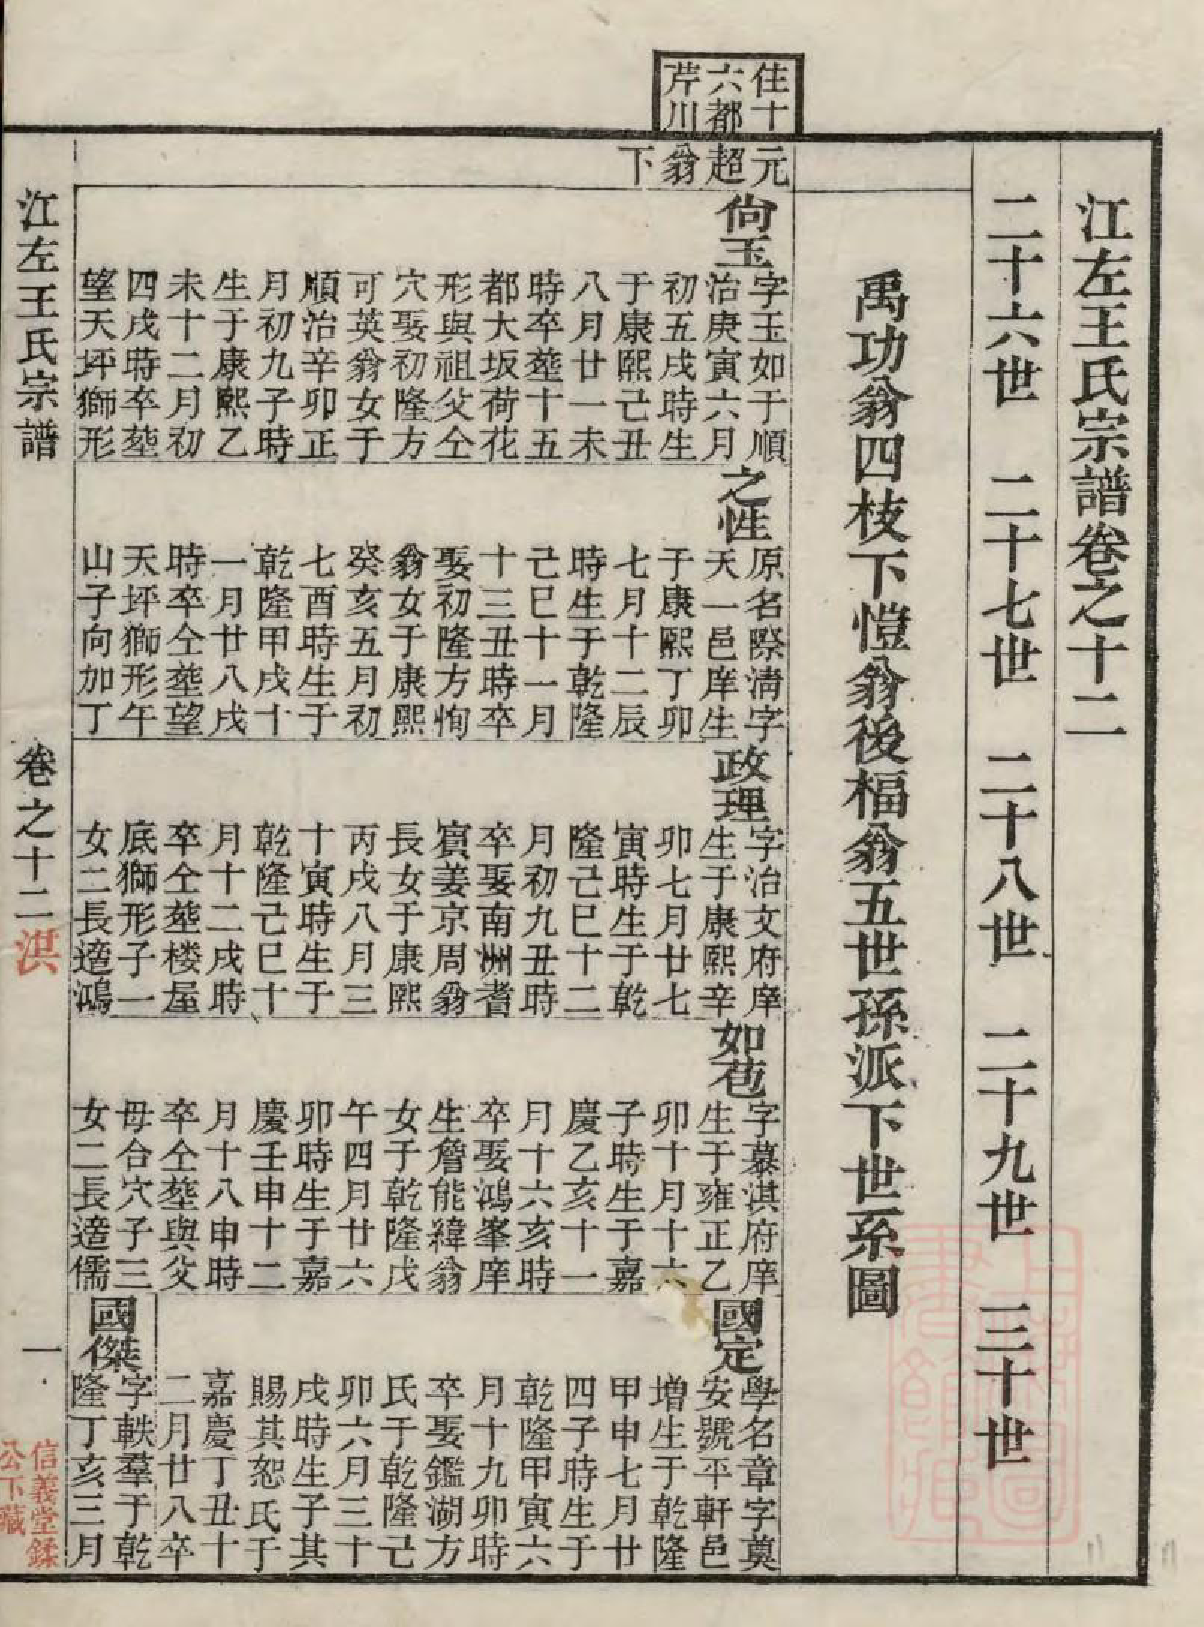 江左王氏宗譜卷之十二
二十六世 二十七世 二十八世 二十九世 三十世
禹功翁四枝下愷翁後楅翁五世孫派下世系圖
住十
六都
芹川
元超翁下
尙玉
字玉如于順
治庚寅六月
初五戌時生
于康熙己丑
八月廿一未
時卒塟十五
都大坂荷花
形與祖父仝
穴娶初隆方
可英翁女于
順治辛卯正
月初九子時
生于康熙乙
未十二月初
四戌時卒塟
望天坪獅形
之性
原名際淸字
天一邑庠生
于康熙丁卯
七月十二辰
時生于乾隆
己巳十一月
十三丑時卒
娶初隆方恂
翁女于康熙
癸亥五月初
七酉時生于
乾隆甲戌十
一月廿八戌
時卒仝塟望
天坪獅形午
山子向加丁
政理
字治文府庠
生于康熙辛
卯七月廿七
寅時生于乾
隆己巳十二
月初九丑時
卒娶南洲耆
賓姜京周翁
長女于康熙
丙戌八月三
十寅時生于
乾隆己巳十
月十二戌時
卒仝塟楼屋
底獅形子一
女二長適鴻
如苞
字慕淇府庠
生于雍正乙
卯十月十六
子時生于嘉
慶乙亥十一
月十六亥時
卒娶鴻峯庠
生詹能緯翁
女于乾隆戊
午四月廿六
卯時生于嘉
慶壬申十二
月十八申時
卒仝塟與父
母合穴子三
女二長適儒
國定
學名章字奠
安號平軒邑
增生于乾隆
甲申七月廿
四子時生于
乾隆甲寅六
月十九卯時
卒娶鑑湖方
氏于乾隆己
卯六月三十
戌時生子其
賜其恕氏于
嘉慶丁丑十
二月廿八卒
國傑
字軼羣于乾
隆丁亥三月
江左王氏宗譜
卷之十二
淇
一
信義堂鍒
公下藏